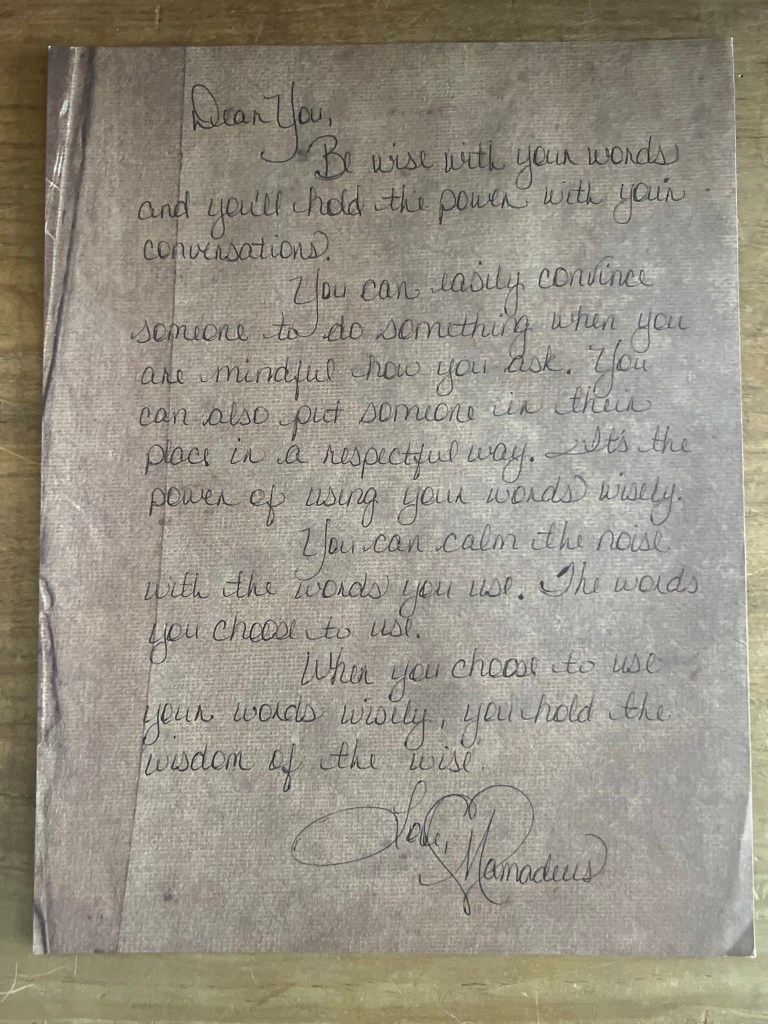 Dear You,
Be wise with your words
and you'll hold the power with your
conversations.
You can easily convince
someone to do something when you
are mindful how you ask. You
can also put someone in their
place in a respectful way. It's the
power of using your words wisely.
You can calm the noise
with the words you use. The words
you choose to use.
When you choose to use
your words wisely, you hold the
wisdom of the wise.
Love,
Mamadeus